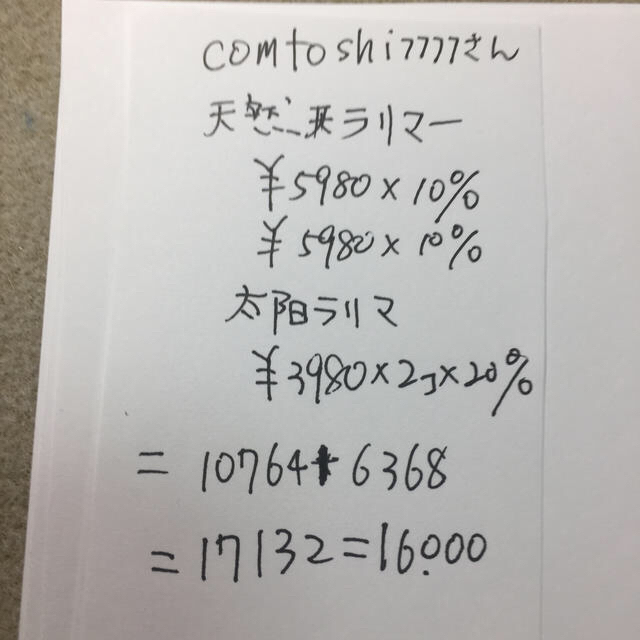 comtoshi7777さん
天然石ラリマー
¥5980×10%
¥5980×10%
太陽ラリマ
¥3980×2コ×20%
=10764+6368
=17132=16.000